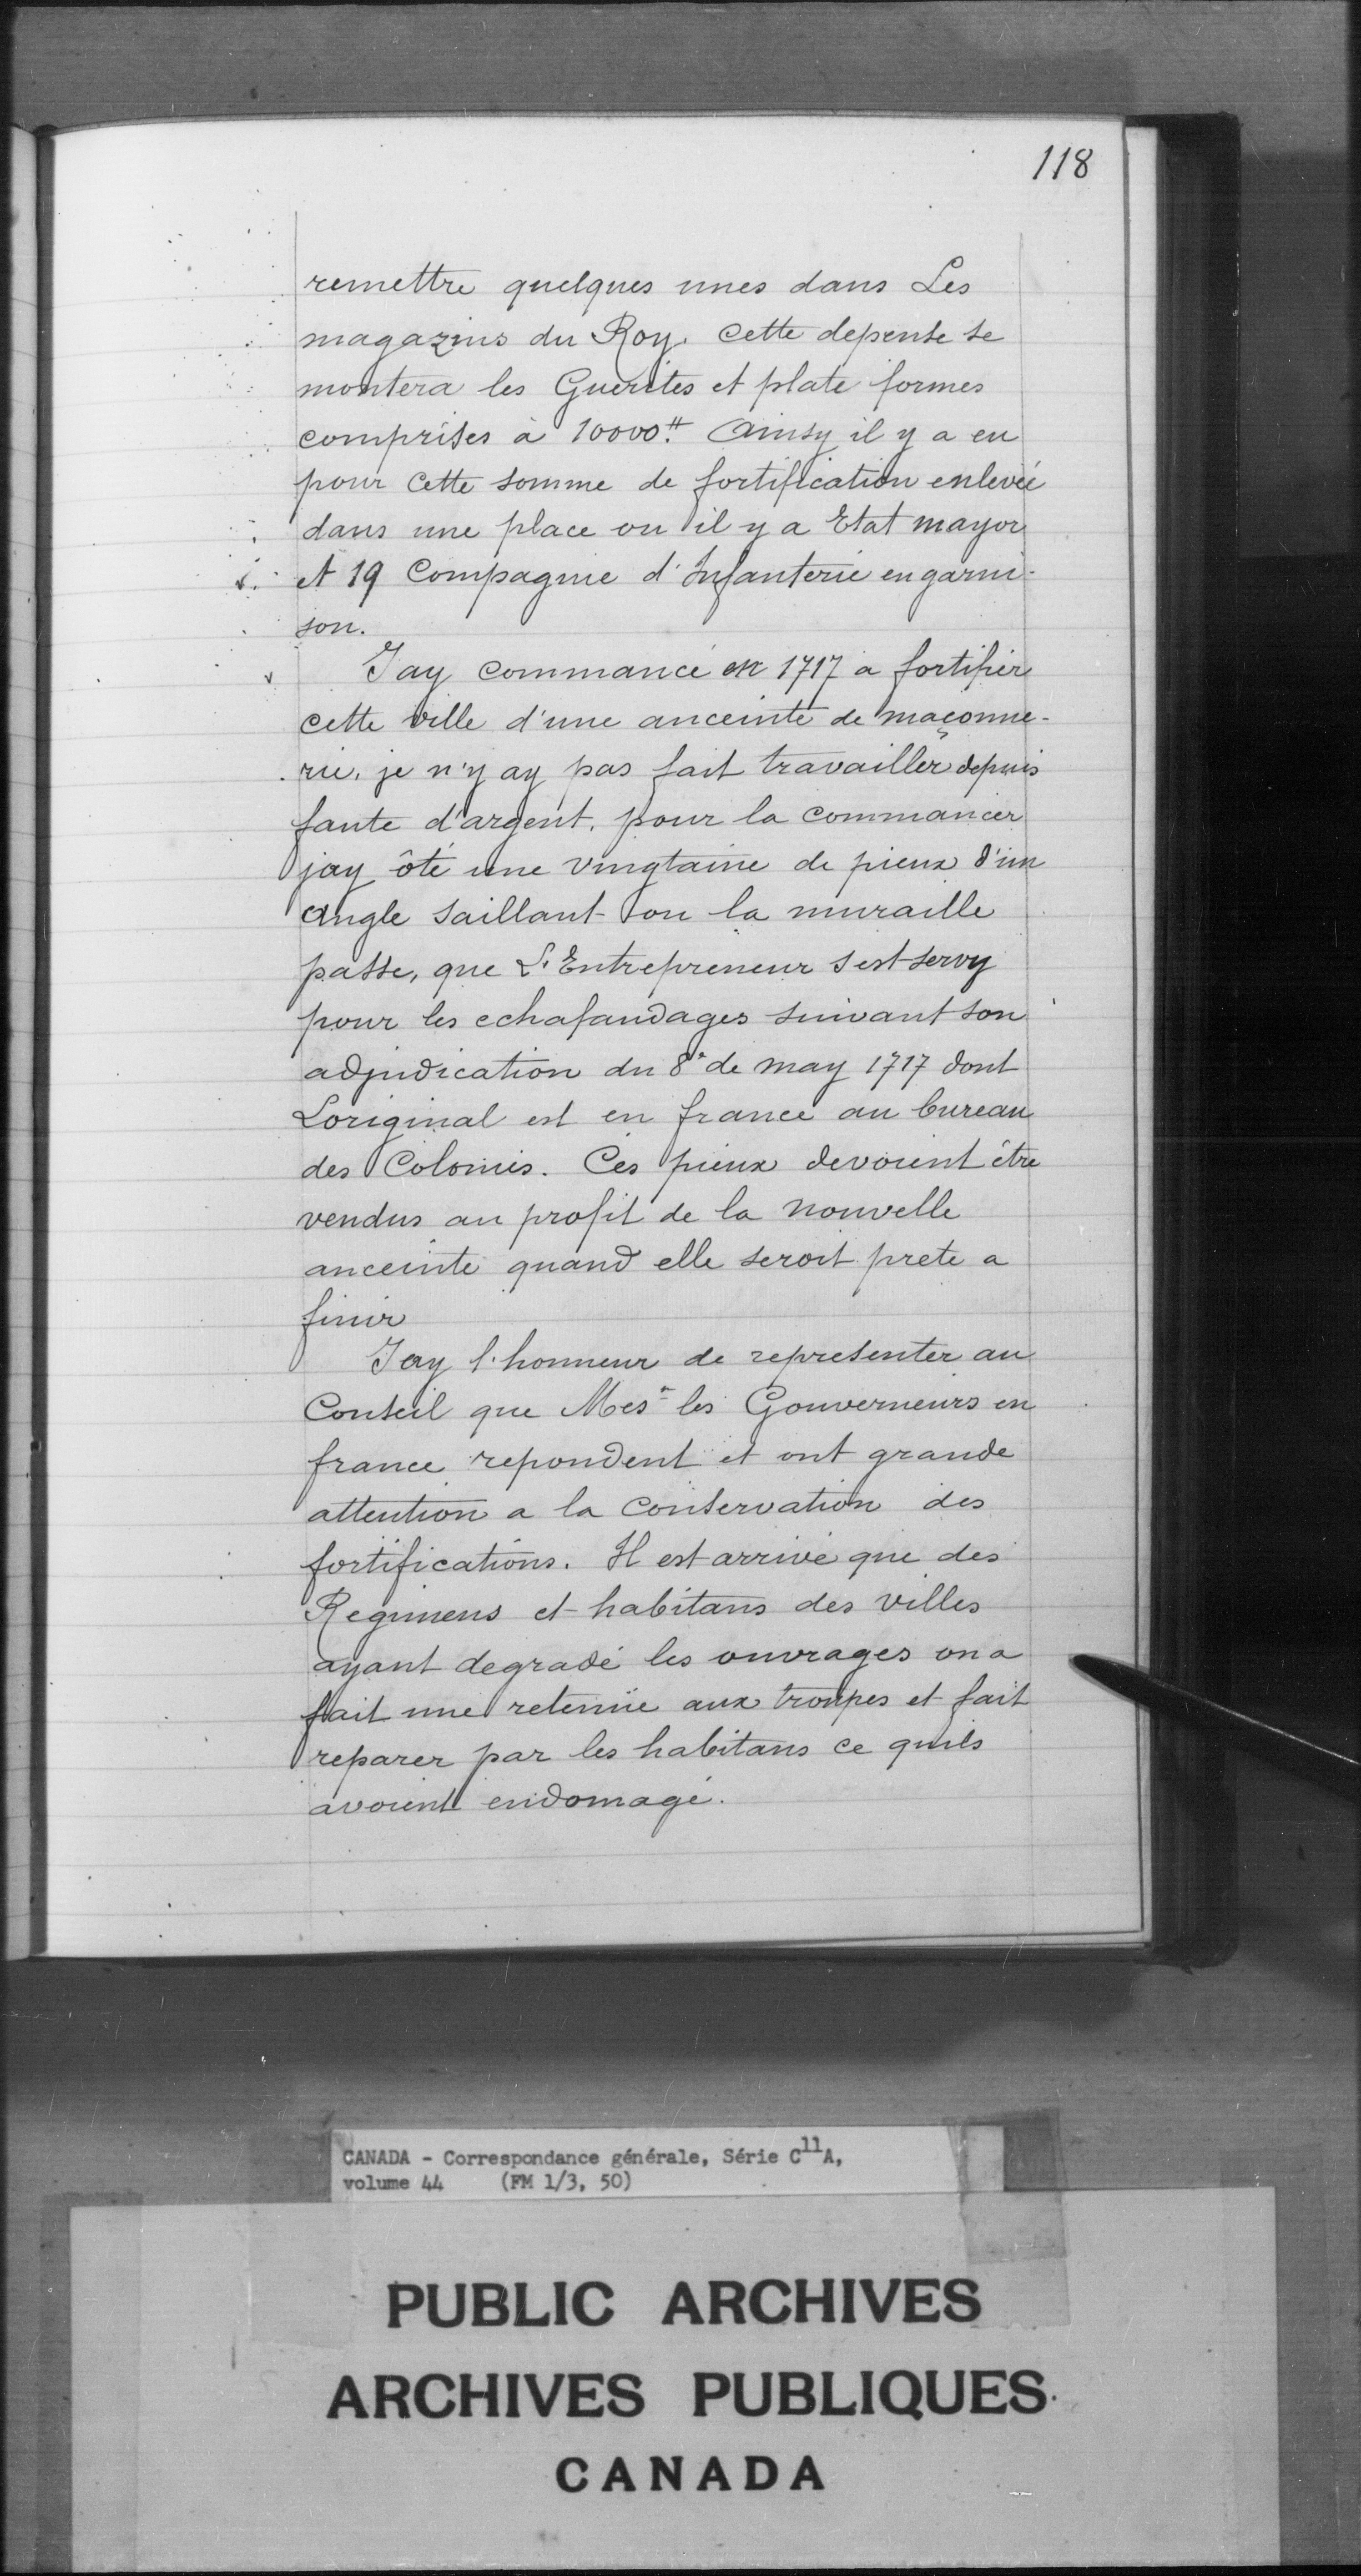 118
remettre quelques unes dans Les
magazins du Roy. cette depense se
montera les Guerites et plate formes
comprises à 10000ᵗᵗ. Ainsy il y a eu
pour cette somme de fortification enlevée
dans une place ou il y a Etat mayor
et 19 Compagnie d'Infanterie en garni-
son.
Jay commancé en 1717 a fortifier
cette ville d'une anceinte de maçonne-
rie, je n'y ay pas fait travailler depuis
faute d'argent. pour la commancer
jay ôté une vingtaine de pieux d'un
angle saillant ou la muraille
passe, que L'Entrepreneur s'est servy
pour les echafaudages suivant son
adjudication du 8e de may 1717 dont
Loriginal est en france au bureau
des Colonies. Ces pieux devoient être
vendus au profit de la nouvelle
anceinte quand elle seroit prete a
finir
Jay l'honneur de representer au
Conseil que Mesrs les Gouverneurs en
france repondent et ont grande
attention a la conservation des
fortifications. Il est arrivé que des
Regimens et habitans des villes
ayant degradé les ouvrages on a
fait une retenüe aux troupes et fait
reparer par les habitans ce quils
avoient endomagé.
CANADA - Correspondance générale, Série C11A,
volume 44 (FM 1/3, 50)
PUBLIC ARCHIVES
ARCHIVES PUBLIQUES
CANADA